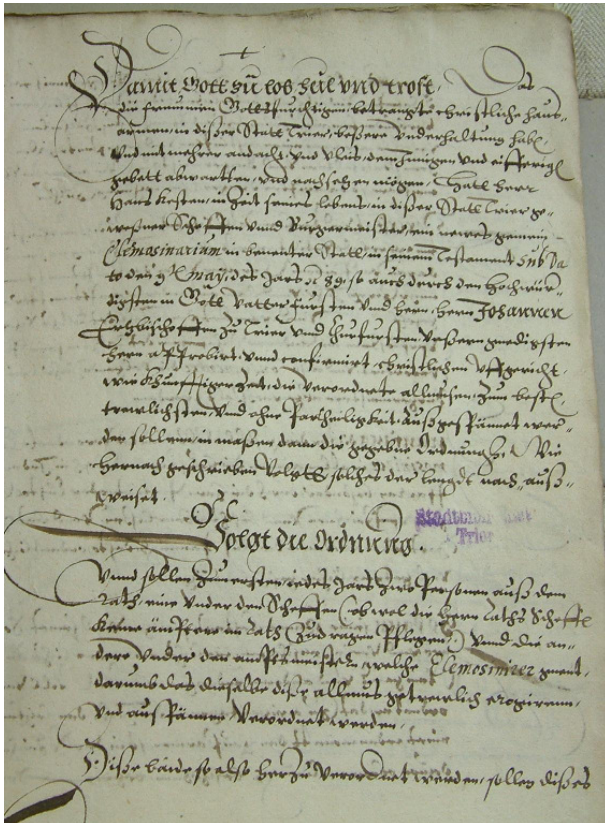 Damit Gott zu lob, heil vnd trost. Das
die frommen Gottsfurchtigen betrangte christliche haus-
armen in dißer Statt Trier beßere vnderhaltung habe,
vnd mit mehrer andacht vnd vleis dem Innigen vnd eifferige
gebett abwartten, vnd nachsehen mögen, Hatt herr
Hans Kesten, in Zeit seines lebens, in dißer Statt Trier ge-
weßner Scheffen vnnd Burgermeister, ein newes gemein
Elemosinariam in benenter Statt, in seinem Testament sub da
to den 9t. May, des Jars 89, so auch durch den Hochwür-
digsten in Gott Vatter fursten vnd hern, hern Johannen
Ertzbischoffen zu Trier vnd Churfursten, vnßern gnedigsten
hern approbirt, vnnd confirmirt, christlichen vffgericht,
wie khunfftiger Zeit, die verordnete allmusen, zum beste
trewlichsten, vnd ohne Partheiligkeit, außgespännet wer-
den sollenn, in maßen dann die gegebne Ordnung, Wie
hernach geschrieben volgtt, solches der lengdt nach auß-
weiset.
Folgt die Ordnung.
Stadtbibliothek
Trier
Vnnd sollen zum ersten iedes Jars zwo Personen auß dem
Rath, eine vnder den Scheffen (obwol die hern Raths Scheffe
keine ämptere im Rath zu tragen Pflegen) vnnd die an-
dere vnder den amptsmeistern, welche Elemosinirer gnent,
darumb das dieselbe diße allmus getrewlich erogirenn,
vnd aus spännen verordnet werden.
Diße beide so also herzu verordnet werden, sollen dißes